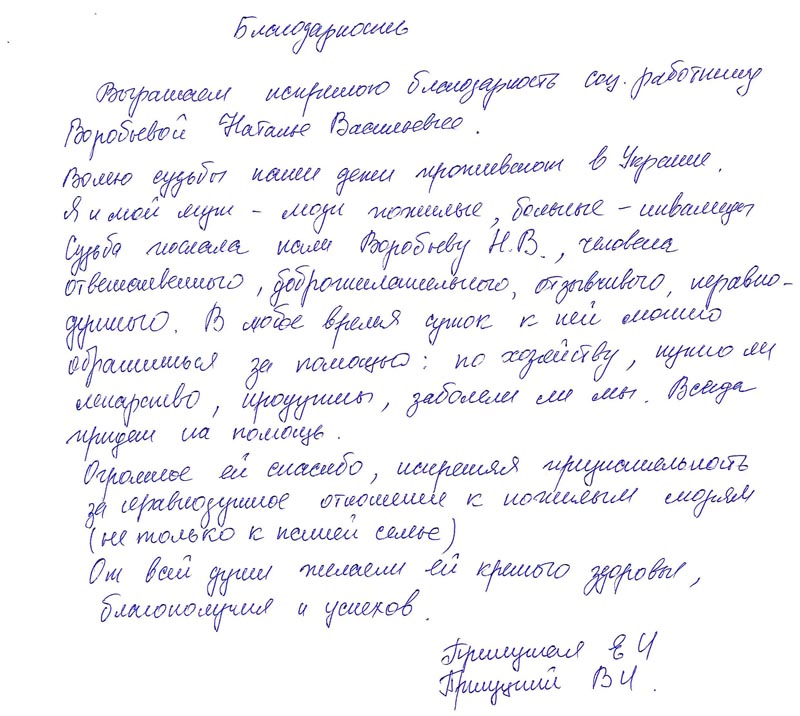 Благодарность
Выражаем искреннюю благодарность соц. работнику
Воробьевой Наталье Васильевне.
Волею судьбы наши дети проживают в Украине.
Я и мой муж - люди пожилые, больные - инвалиды
Судьба послала нам Воробьеву Н.В., человека
ответственного, доброжелательного, отзывчивого, неравно-
душного. В любое время суток к ней можно
обратиться за помощью: по хозяйству, нужно ли
лекарство, продукты, заболели ли мы. Всегда
придет на помощь.
Огромное ей спасибо, искренняя признательность
за неравнодушное отношение к пожилым людям
(не только к нашей семье)
От всей души желаем ей крепкого здоровья,
благополучия и успехов.
Е И
В И.